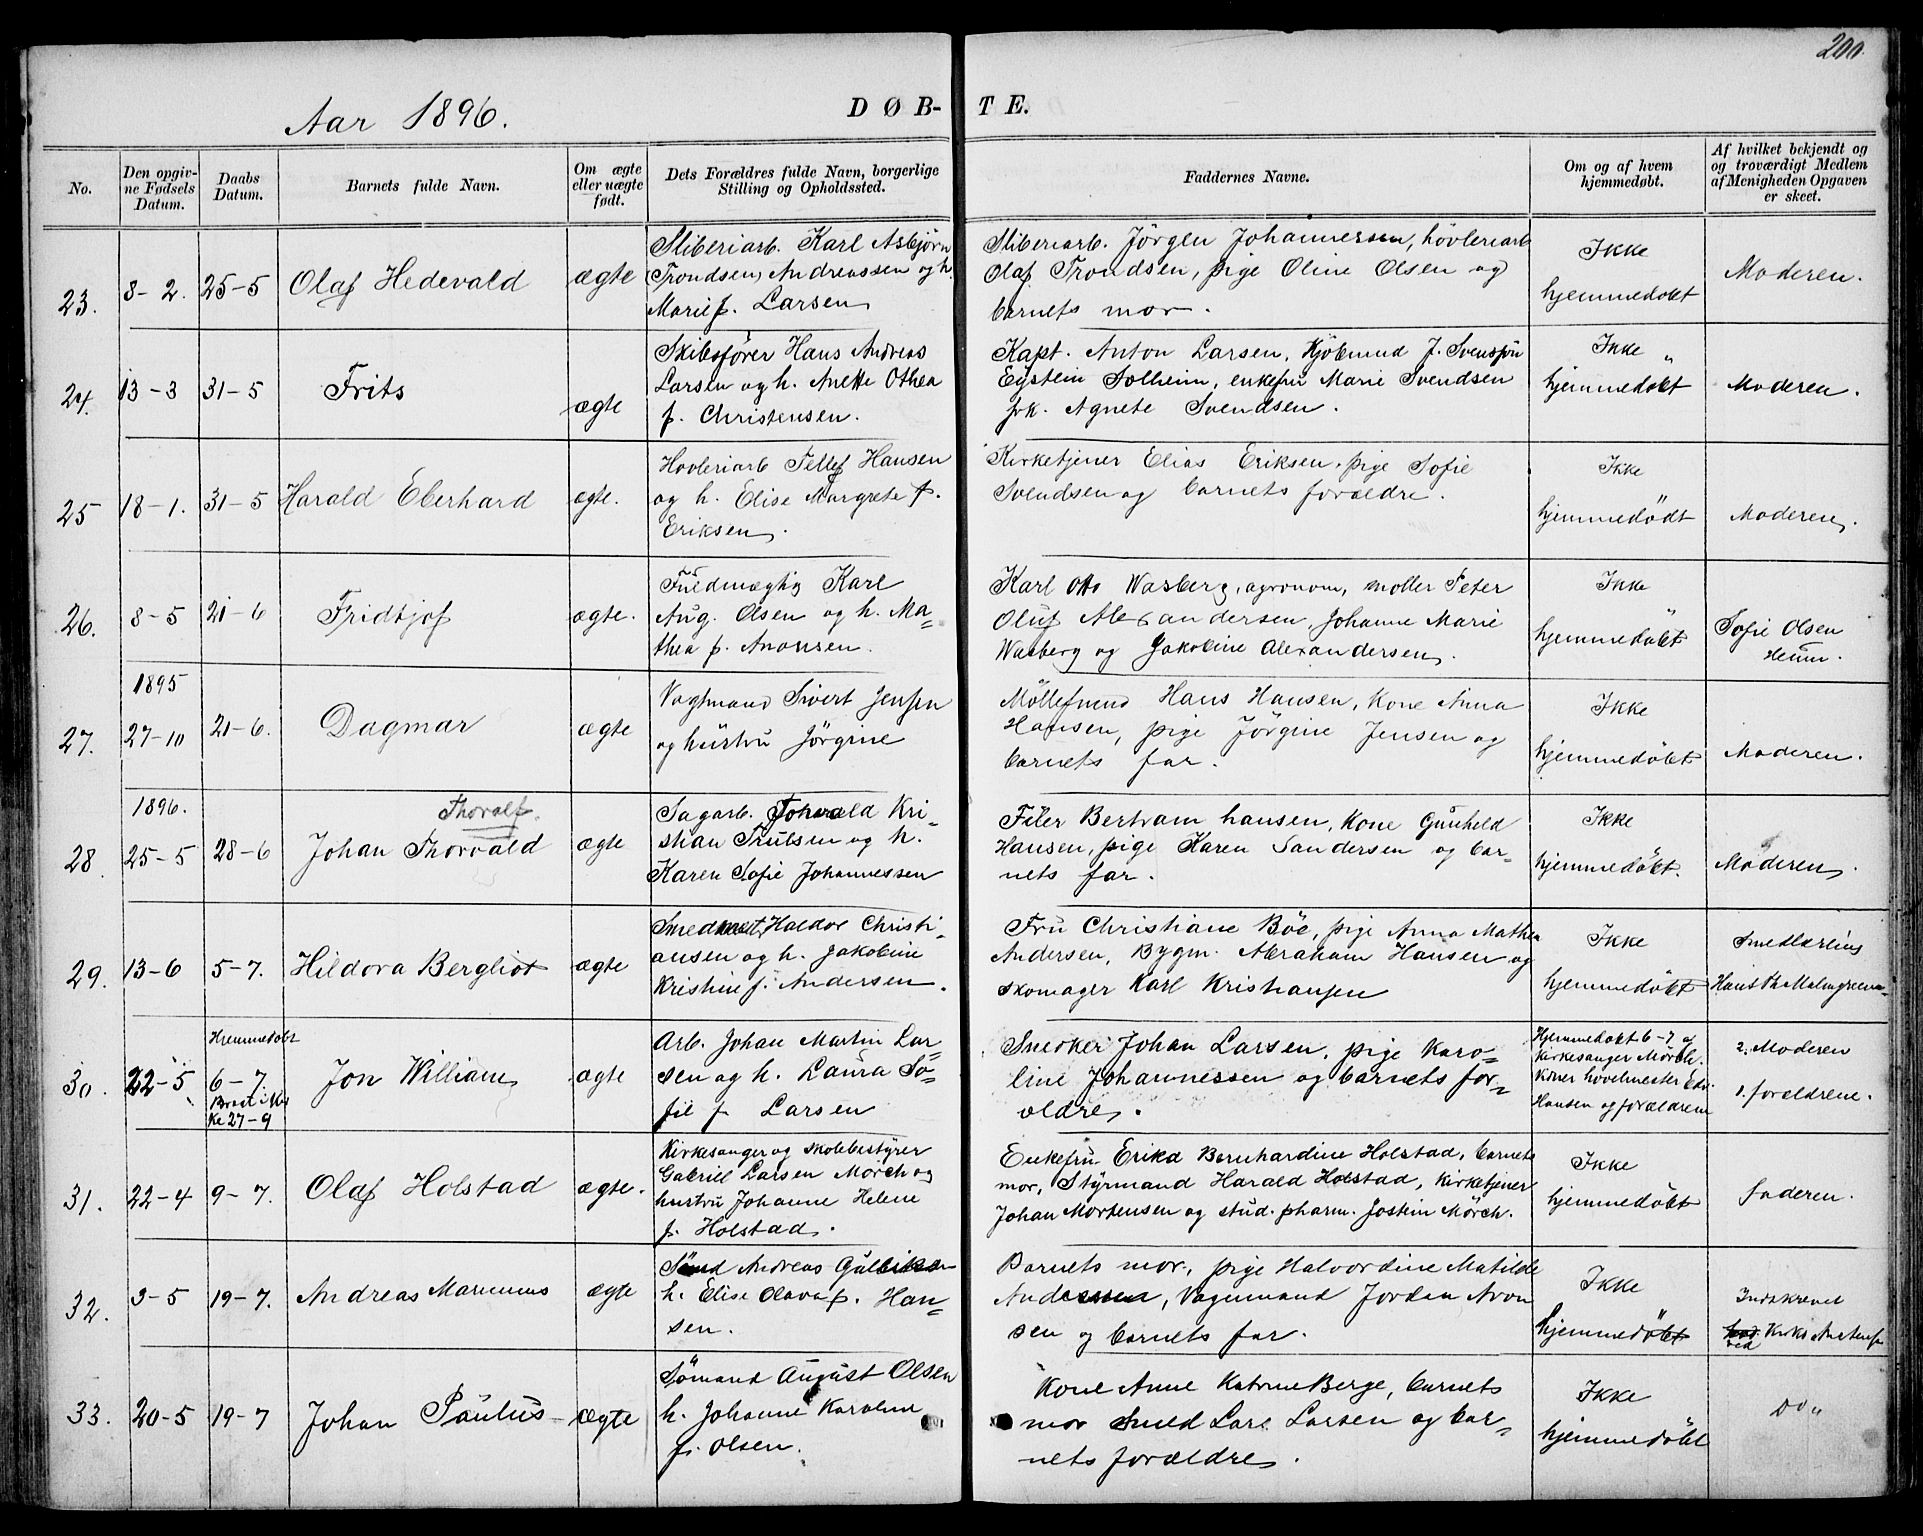 200.
Aar 1896.
DØB-
TE.
No.
Den opgiv-
ne Fødsels
Datum.
Daabs
Datum.
Barnets fulde Navn.
Om ægte
eller uægte
født.
Dets Forældres fulde Navn, borgerlige
Stilling og Opholdssted.
Faddernes Navne.
Om og af hvem
hjemmedøbt.
Af hvilket bekjendt og
og troværdigt Medlem
af Menigheden Opgaven
er skeet.
23. 8-2. 25-5 Olaf Hedevald ægte
Sliberiarb. Karl Asbjørn
(Trondsen) Andreassen og h.
Marie f. Larsen
Sliberiarb. Jörgen Johannessen, hövleriarb
Olaf Trondsen, pige Oline Olsen og
barnets mor.
Ikke
hjemmedøbt
Moderen.
24. 13-3 31-5 Frits ægte
Skibsfører Hans Andreas
Larsen og h. Anette Othea
f. Christensen.
Kapt. Anton Larsen, Kjöbmnd J. Svensson
Eystein Solheim, enkefru Marie Svendsen
frk. Agnete Svendsen.
Ikke
hjemmedøbt
Moderen.
25 18-1. 31-5 Harald Eberhard ægte.
Hovleriarb Tellef Hansen
og h. Elise Margrete f.
Eriksen.
Kirketjener Elias Eriksen, pige Sofie
Svendsen og barnets forældre.
Ikke
hjemmedödt
Moderen.
26. 8-5 21-6 Fridtjof ægte.
Fuldmægtig Karl
Aug. Olsen og h. Ma-
thea f. Aronsen.
Karl Otto Wasberg, agronom, moller Peter
Oluf Alexandersen, Johanne Marie
Wasberg og Jakobine Alexandersen.
Ikke
hjemmedøbt
Sofie Olsen
27. 1895
27-10 21-6. Dagmar ægte
Vagtmand Sivert Jensen
og hustru Jörgine
Möllesvend Hans Hansen, Kone Anna
Hansen, pige Jörgine Jensen og
barnets far.
Ikke
hjemmedöbt
Moderen.
28. 1896.
25-5 28-6 Johan Thorvald ægte
Thoralf.
Sagarb. Johan Kri-
stian Trulsen og h.
Karen Sofie Johannessen
Filer Bertram hansen, Kone Gunhild
Hansen, pige Karen Sandersen og bar-
nets far.
Ikke
hjemmedøbt.
Moderen.
29. 13-6 5-7. Hildora Bergliot ægte
Smedmest. Haldor Christi-
ansen og h. Jakobine
Kristine f. Andersen.
Fru Christiane Böe, pige Anna Mathea
Andersen, Bygm. Abraham Hansen og
skomager Karl Kristiansen
Ikke
hjemmedøbt
Smedlærling
Hans Th Malmgreen.
30. 22-5 Hjemmedøbt
6-7.
27-9
Jon William ægte
Arb. Johan Martin Lar-
sen og h. Laura So-
fie f Larsen
Snedker Johan Larsen, pige Karo-
line Johannessen og barnets for-
ældre.
Hjemmedøbt 6-7 af
Kirkesanger Mörch.
Koner hovelmester Edv.
Hansen og forældrene
2. Moderen
1. forældrene.
31. 22-4 9-7. Olaf Holstad ægte.
Kirkesanger og skolebestyrer
Gabriel Larsen Mörch og
hustru Johanne Helene
f. Holstad.
Enkefru Erika Bernhardine Holstad, barnets
mor, Styrmand Harald Holstad, Kirketjener
Johan Mortensen og stud. pharm. Jostein Mörch.
Ikke
hjemmedøbt
faderen.
32. 3-5 19-7. Andreas Marinius ægte
Sömd Andreas Gulliksen
h. Elise Olava f. Han-
sen.
Barnets mor, pige Halvordine Matilde
Andersen, Vognmand Jordan Aron
sen og barnets far.
Ikke
hjemmedøbt
Indskrevet
ved
33. 20-5 19-7 Johan Paulus ægte
Sömand August Olsen
h. Johanne Karoline
f. Olsen.
Kone Anne Katrine Berge, barnets
mor Smed Lars Larsen og bar-
nets forældre.
Ikke
hjemmedöbt
Do "